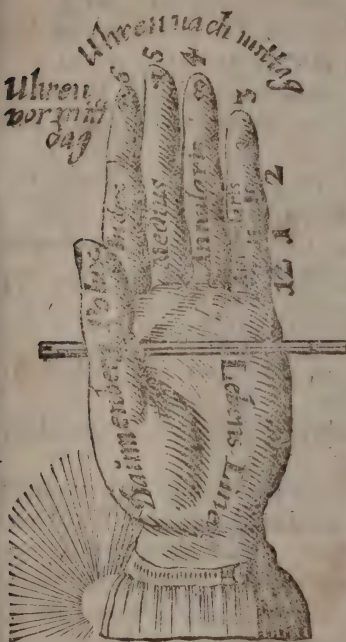 Uhren nach mittag
Uhren
vormitt
dag
6 5 4 3
2
1
12
Index
Medius
Annularis
aris
Polux
Daumenberg
Lebens Linie